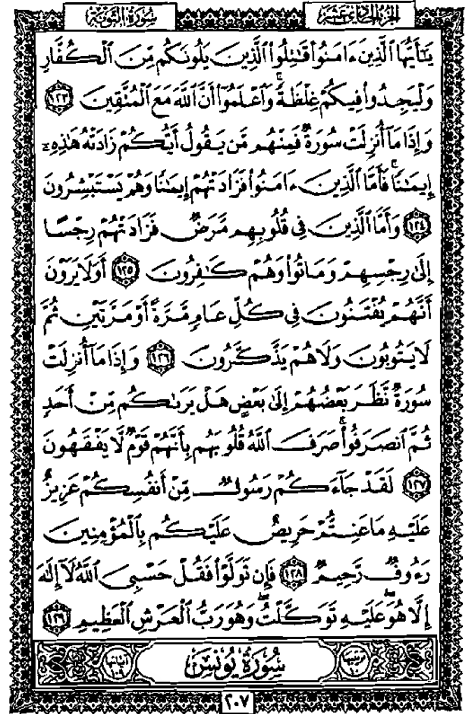 سُورَةُ التَّوْبَةِ الجُزْءُ الحَادِي عَشَرَ
يَـٰٓأَيُّهَا ٱلَّذِينَ ءَامَنُوا۟ قَـٰتِلُوا۟ ٱلَّذِينَ يَلُونَكُم مِّنَ ٱلْكُفَّارِ
وَلْيَجِدُوا۟ فِيكُمْ غِلْظَةً ۚ وَٱعْلَمُوٓا۟ أَنَّ ٱللَّهَ مَعَ ٱلْمُتَّقِينَ ١٢٣
وَإِذَا مَآ أُنزِلَتْ سُورَةٌ فَمِنْهُم مَّن يَقُولُ أَيُّكُمْ زَادَتْهُ هَـٰذِهِۦٓ
إِيمَـٰنًا ۚ فَأَمَّا ٱلَّذِينَ ءَامَنُوا۟ فَزَادَتْهُمْ إِيمَـٰنًا وَهُمْ يَسْتَبْشِرُونَ
١٢٤ وَأَمَّا ٱلَّذِينَ فِى قُلُوبِهِم مَّرَضٌ فَزَادَتْهُمْ رِجْسًا
إِلَىٰ رِجْسِهِمْ وَمَاتُوا۟ وَهُمْ كَـٰفِرُونَ ١٢٥ أَوَلَا يَرَوْنَ
أَنَّهُمْ يُفْتَنُونَ فِى كُلِّ عَامٍ مَّرَّةً أَوْ مَرَّتَيْنِ ثُمَّ
لَا يَتُوبُونَ وَلَا هُمْ يَذَّكَّرُونَ ١٢٦ وَإِذَا مَآ أُنزِلَتْ
سُورَةٌ نَّظَرَ بَعْضُهُمْ إِلَىٰ بَعْضٍ هَلْ يَرَىٰكُم مِّنْ أَحَدٍ
ثُمَّ ٱنصَرَفُوا۟ ۚ صَرَفَ ٱللَّهُ قُلُوبَهُم بِأَنَّهُمْ قَوْمٌ لَّا يَفْقَهُونَ
١٢٧ لَقَدْ جَآءَكُمْ رَسُولٌ مِّنْ أَنفُسِكُمْ عَزِيزٌ
عَلَيْهِ مَا عَنِتُّمْ حَرِيصٌ عَلَيْكُم بِٱلْمُؤْمِنِينَ
رَءُوفٌ رَّحِيمٌ ١٢٨ فَإِن تَوَلَّوْا۟ فَقُلْ حَسْبِىَ ٱللَّهُ لَآ إِلَـٰهَ
إِلَّا هُوَ ۖ عَلَيْهِ تَوَكَّلْتُ ۖ وَهُوَ رَبُّ ٱلْعَرْشِ ٱلْعَظِيمِ ١٢٩
سُورَةُ يُونُسَ
٢٠٧